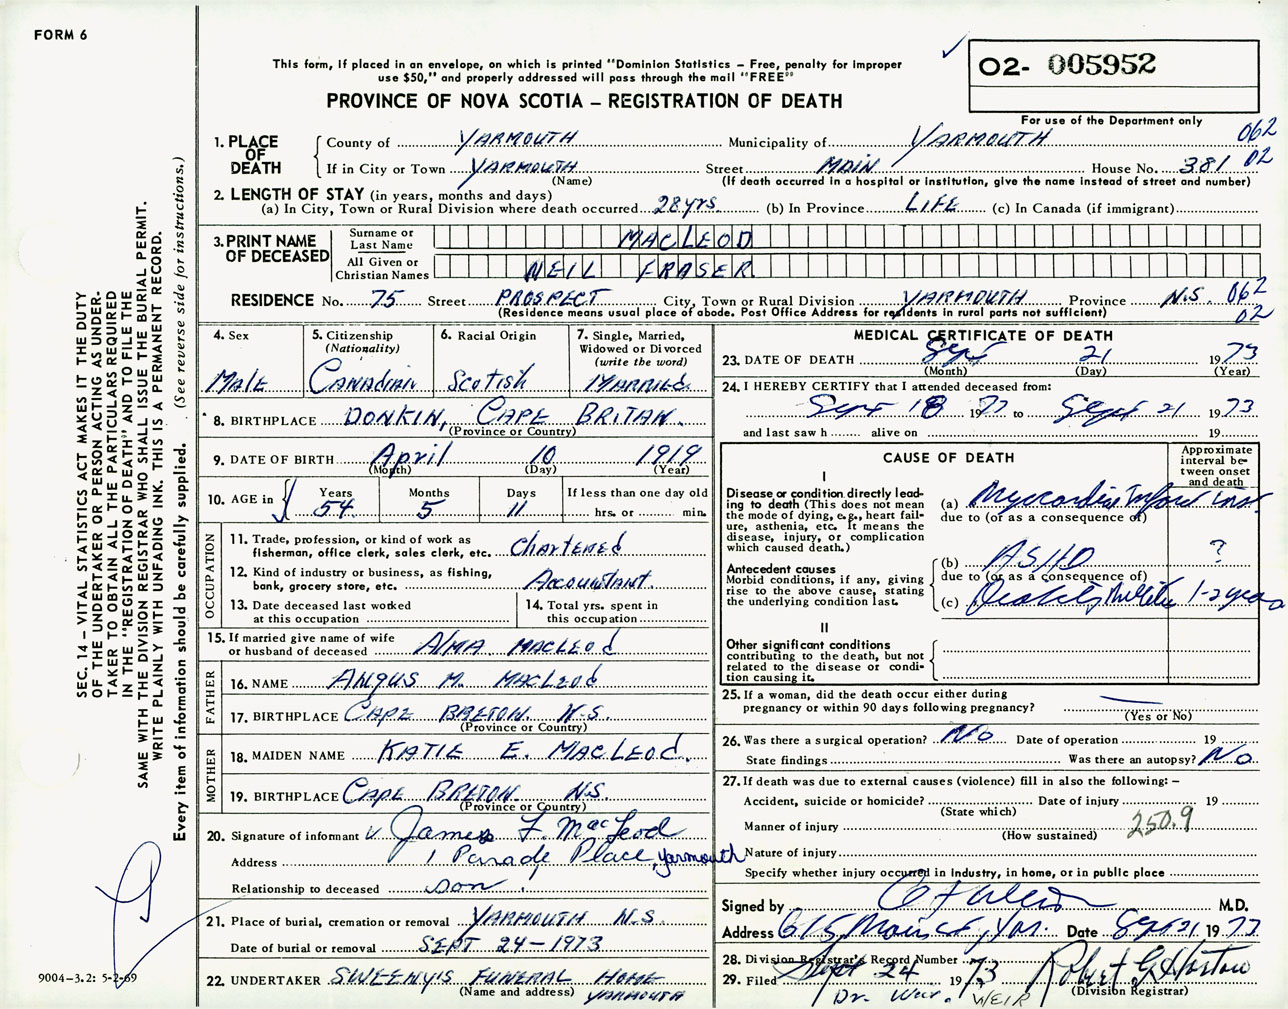 FORM 6
This form, if placed in an envelope, on which is printed "Dominion Statistics – Free, penalty for improper
use $50," and properly addressed will pass through the mail "FREE"
O2- 005952
PROVINCE OF NOVA SCOTIA – REGISTRATION OF DEATH
For use of the Department only
1. PLACE OF DEATH County of YARMOUTH Municipality of YARMOUTH 062
If in City or Town YARMOUTH Street MAIN House No. 381 02
(Name) (If death occurred in a hospital or institution, give the name instead of street and number)
2. LENGTH OF STAY (in years, months and days)
(a) In City, Town or Rural Division where death occurred 28 yrs. (b) In Province LIFE (c) In Canada (if immigrant)
3. PRINT NAME OF DECEASED Surname or Last Name MACLEOD
All Given or Christian Names NEIL FRASER
RESIDENCE No. 75 Street PROSPECT City, Town or Rural Division YARMOUTH Province N.S. 062
(Residence means usual place of abode. Post Office Address for residents in rural parts not sufficient) 02
4. Sex Male
5. Citizenship (Nationality) Canadian
6. Racial Origin Scotish
7. Single, Married, Widowed or Divorced (write the word) MARRIED.
8. BIRTHPLACE DONKIN, CAPE BRITAN.
(Province or Country)
9. DATE OF BIRTH April 10 1919
(Month) (Day) (Year)
10. AGE in Years 54 Months 5 Days 11 If less than one day old hrs. or min.
OCCUPATION
11. Trade, profession, or kind of work as fisherman, office clerk, sales clerk, etc. Chartered
12. Kind of industry or business, as fishing, bank, grocery store, etc. Accountant.
13. Date deceased last worked at this occupation
14. Total yrs. spent in this occupation
15. If married give name of wife or husband of deceased Alma MacLeod
FATHER
16. NAME Angus M. MacLeod
17. BIRTHPLACE Cape Breton N.S.
(Province or Country)
MOTHER
18. MAIDEN NAME KATIE E. MacLeod.
19. BIRTHPLACE Cape Breton N.S.
(Province or Country)
20. Signature of informant James F. MacLeod
Address 1 Parade Place, Yarmouth
Relationship to deceased son.
21. Place of burial, cremation or removal YARMOUTH N.S.
Date of burial or removal SEPT 24-1973
22. UNDERTAKER SWEENY'S FUNERAL HOME
(Name and address) YARMOUTH
MEDICAL CERTIFICATE OF DEATH
23. DATE OF DEATH Sept 21 1973
(Month) (Day) (Year)
24. I HEREBY CERTIFY that I attended deceased from:
Sept 18 1973 to Sept 21 1973
and last saw h alive on 19
CAUSE OF DEATH
Approximate interval between onset and death
I
Disease or condition directly leading to death (This does not mean the mode of dying, e.g., heart failure, asthenia, etc. It means the disease, injury, or complication which caused death.)
(a) Myocardial Infarct inst.
due to (or as a consequence of)
Antecedent causes
Morbid conditions, if any, giving rise to the above cause, stating the underlying condition last.
(b) ASHD ?
due to (or as a consequence of)
(c) Diabetes Mellitus 1-2 years
II
Other significant conditions
contributing to the death, but not related to the disease or condition causing it.
25. If a woman, did the death occur either during
pregnancy or within 90 days following pregnancy?
(Yes or No)
26. Was there a surgical operation? No Date of operation 19
State findings Was there an autopsy? No
27. If death was due to external causes (violence) fill in also the following: –
Accident, suicide or homicide? Date of injury 19
(State which)
Manner of injury 250.9
(How sustained)
Nature of injury
Specify whether injury occurred in industry, in home, or in public place
Signed by M.D.
Address 615 Main St, Yar. Date Sept 21 1973
28. Division Registrar's Record Number
29. Filed Sept 24 1973
(Division Registrar)
Dr. Weir. WEIR
SEC. 14 – VITAL STATISTICS ACT MAKES IT THE DUTY
OF THE UNDERTAKER OR PERSON ACTING AS UNDER-
TAKER TO OBTAIN ALL THE PARTICULARS REQUIRED
IN THE "REGISTRATION OF DEATH" AND TO FILE THE
SAME WITH THE DIVISION REGISTRAR WHO SHALL ISSUE THE BURIAL PERMIT.
WRITE PLAINLY WITH UNFADING INK. THIS IS A PERMANENT RECORD.
Every item of information should be carefully supplied. (See reverse side for instructions.)
9004-3.2: 5-2-69